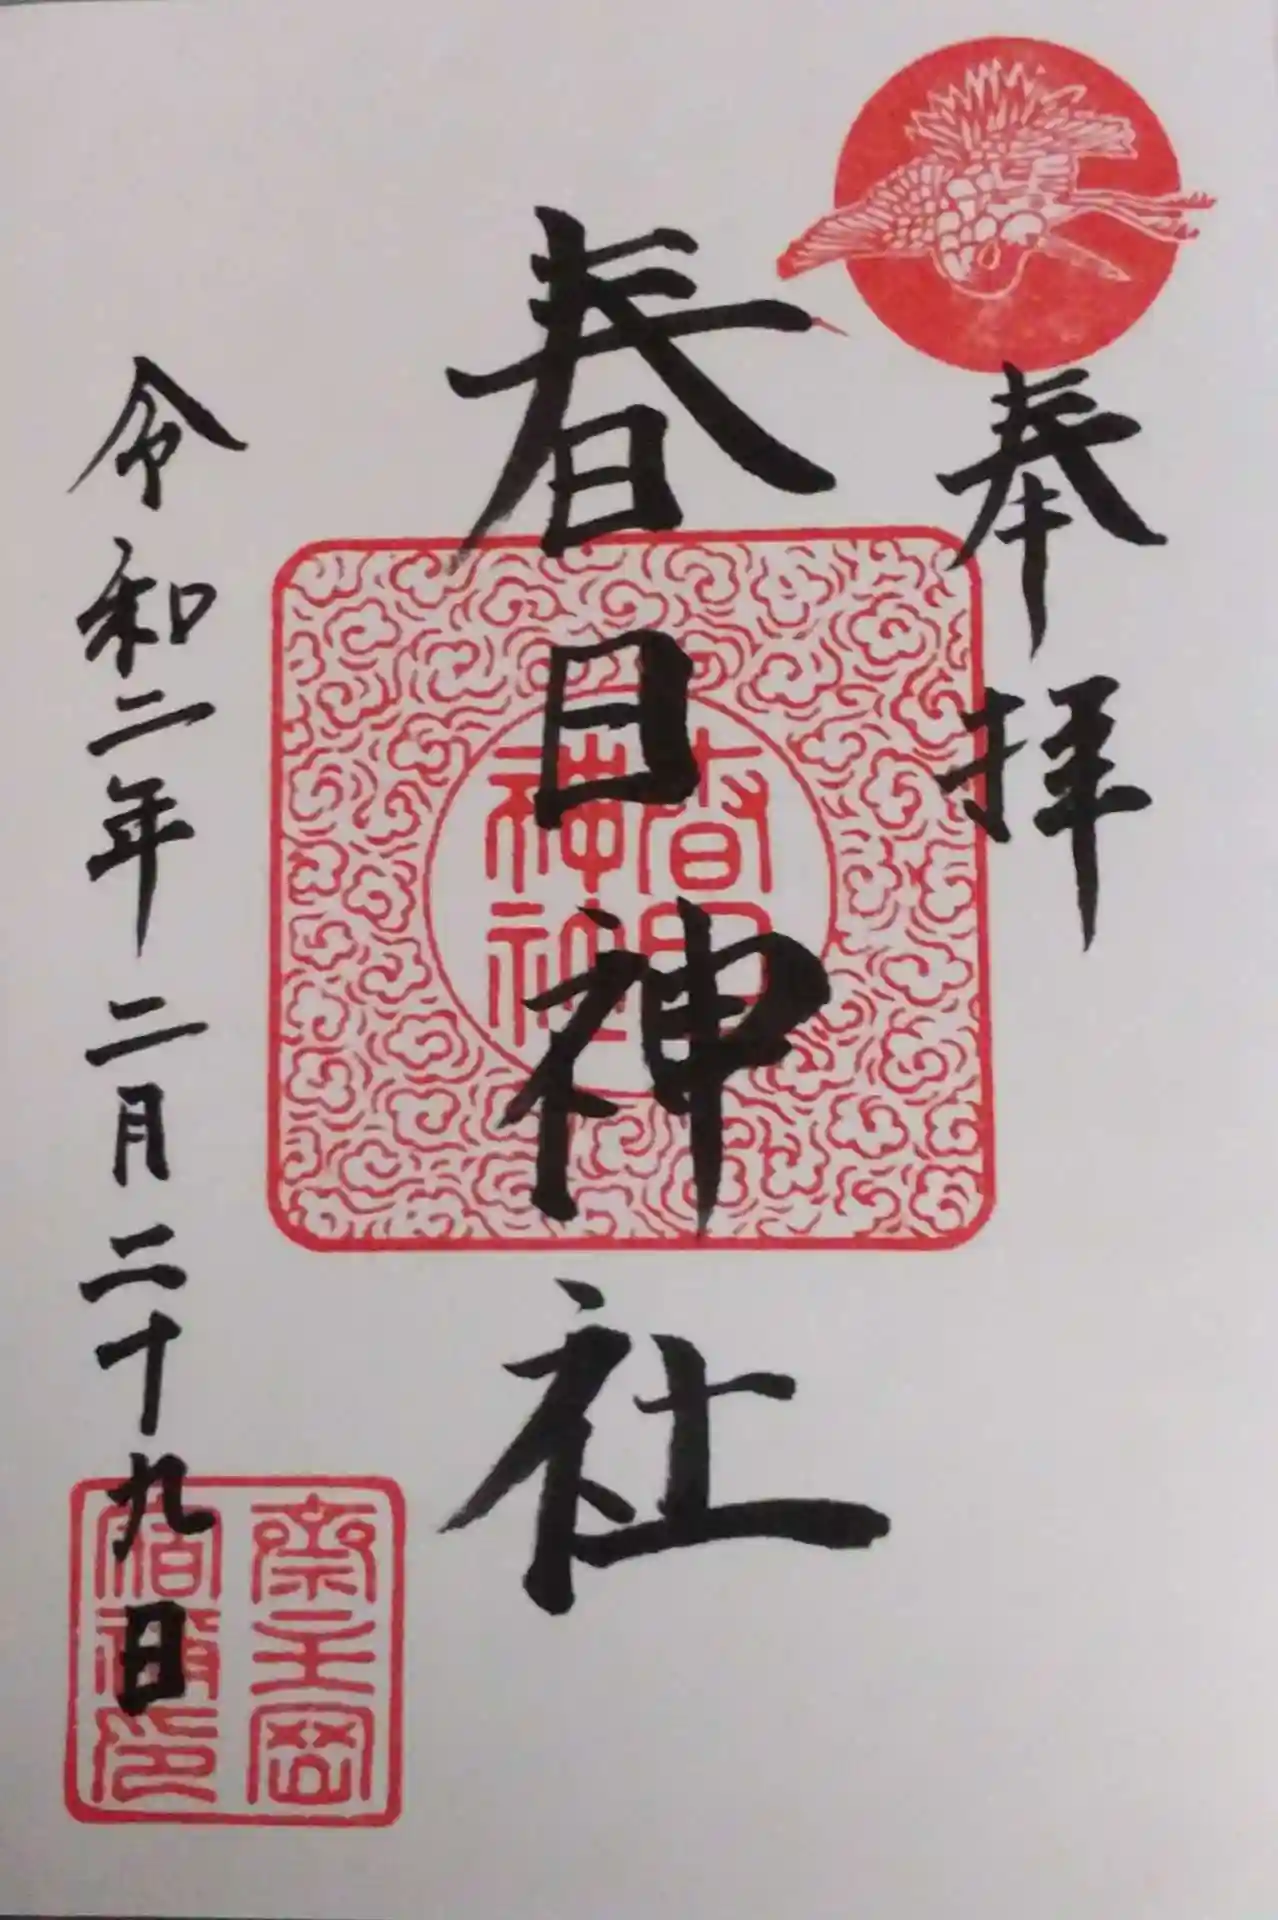 奉拝
春日神社
春日
神社
令和二年二月二十九日